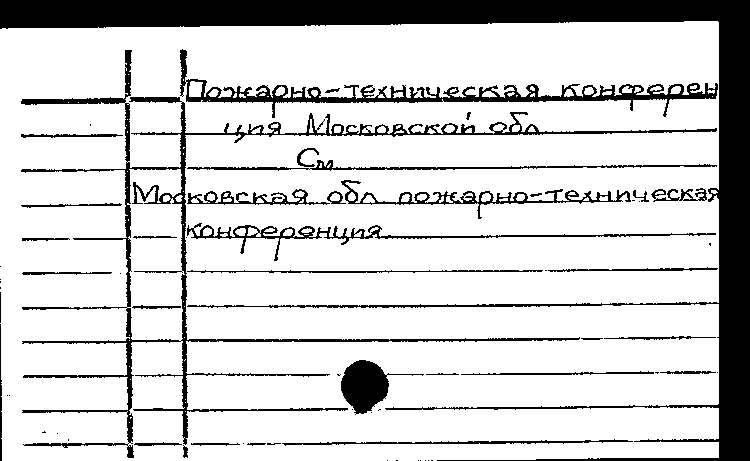 Пожарно-техническая конферен
ция Московской обл
См
Московская обл пожарно-техническая
конференция